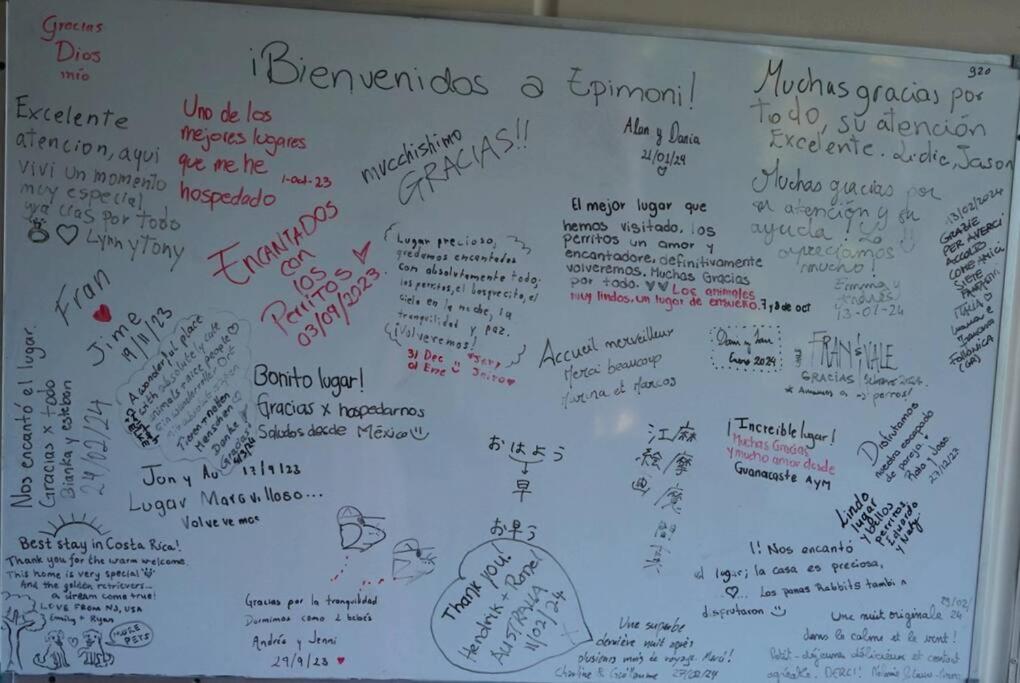 Gracias
Dios
mío
¡Bienvenidos a Epimoni!
920
Muchas gracias por
todo, su atención
Excelente. Lidie, Jason
Excelente
atencion, aqui
vivi un momento
muy especial
gracias por todo
Lynn y Tony
Uno de los
mejores lugares
que me he
hospedado
1-oct-23
mucchishimo
GRACIAS!!
Alan y Dania
21/01/24
Muchas gracias por
atención y su
ayuda. Lo
apreciamos
mucho!
Emma y
Andrés
13-01-24
13/02/2024
GRAZIE
PER AVERCI
ACCOLTO
COME AMICI
SIETE
FANTASTICI
ITALIA
Follonica
(GR)
El mejor lugar que
hemos visitado. los
perritos un amor y
encantadore, definitivamente
volveremos. Muchas Gracias
por todo. ♥♥ Los animales
muy lindos, un lugar de ensueño. 7 y 8 de oct
ENCANTADOS
CON
los
PERRITOS
03/09/2023
Lugar precioso,
quedamos encantados
con absolutamente todo;
los perritos, el bosquecito, el
cielo en la noche, la
tranquilidad y paz.
¡Volveremos!
31 Dec
al Ene
Fran
Jime
19/11/23
A wonderful place
with absolutely cute
animals + nice people
Ein wunderschöner Ort
Tieren + netten
Menschen
Danke
Gracias
ELKE
Nos encantó el lugar.
Gracias x todo
Bianka y esteban
24/02/24
Bonito lugar!
Gracias x hospedarnos
Saludos desde México
Accueil merveilleux
Merci beaucoup
Marina et Marcos
Enero 2024
FRAN & VALE
GRACIAS
* Amamos a perros!
Jon y Au 17/9/23
Lugar Maravilloso...
Volveremos
おはよう
早
お早う
江
絵
画
麻
摩
魔
¡Increible lugar!
Muchas Gracias
y mucho amor desde
Guanacaste AyM
Disfrutamos
nuestra escapada
de pareja!
27/12/23
Lindo
lugar
y bellos
perritos
Eduardo
y Naty
Best stay in Costa Rica!
Thank you for the warm welcome.
This home is very special
And the golden retrievers...
a dream come true!
LOVE FROM NJ, USA
Emily + Ryan
MORE
PETS
Gracias por la tranquilidad
Dormimos como 2 bebés
Andrés y Jenni
29/9/23
Thank you!
Hendrik + Romel
AUSTRALIA
11/02/24
¡! Nos encantó
el lugar; la casa es preciosa,
♡... Los panas Rabbits también
disfrutaron
Une superbe
dernière nuit après
plusieurs mois de voyage. Merci!
Charline & Guillaume 27/02/24
Une nuit originale
dans le calme et le vent!
Petit-déjeuner délicieux et contact
agréable. MERCI!